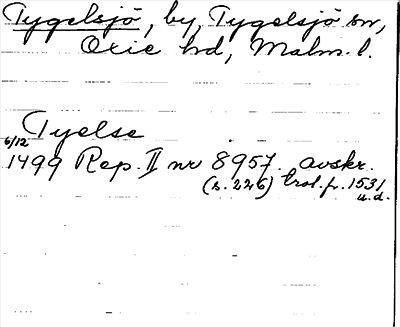 Tygelsjö, by, Tygelsjö sn,
Oxie hd, Malm. l.
Tyelse
6/12
1499 Rep. II nr 8957. avskr.
(s. 226) trol. fr. 1531
u.d.